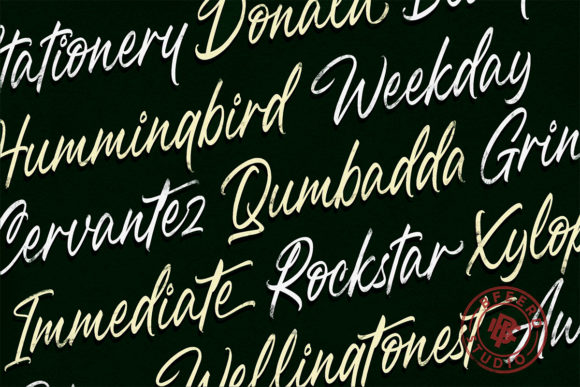 Stationery Donald
Hummingbird Weekday
Cervantez Qumbadda Grin
Immediate Rockstar Xylop
Wellingtonest
STUDIO